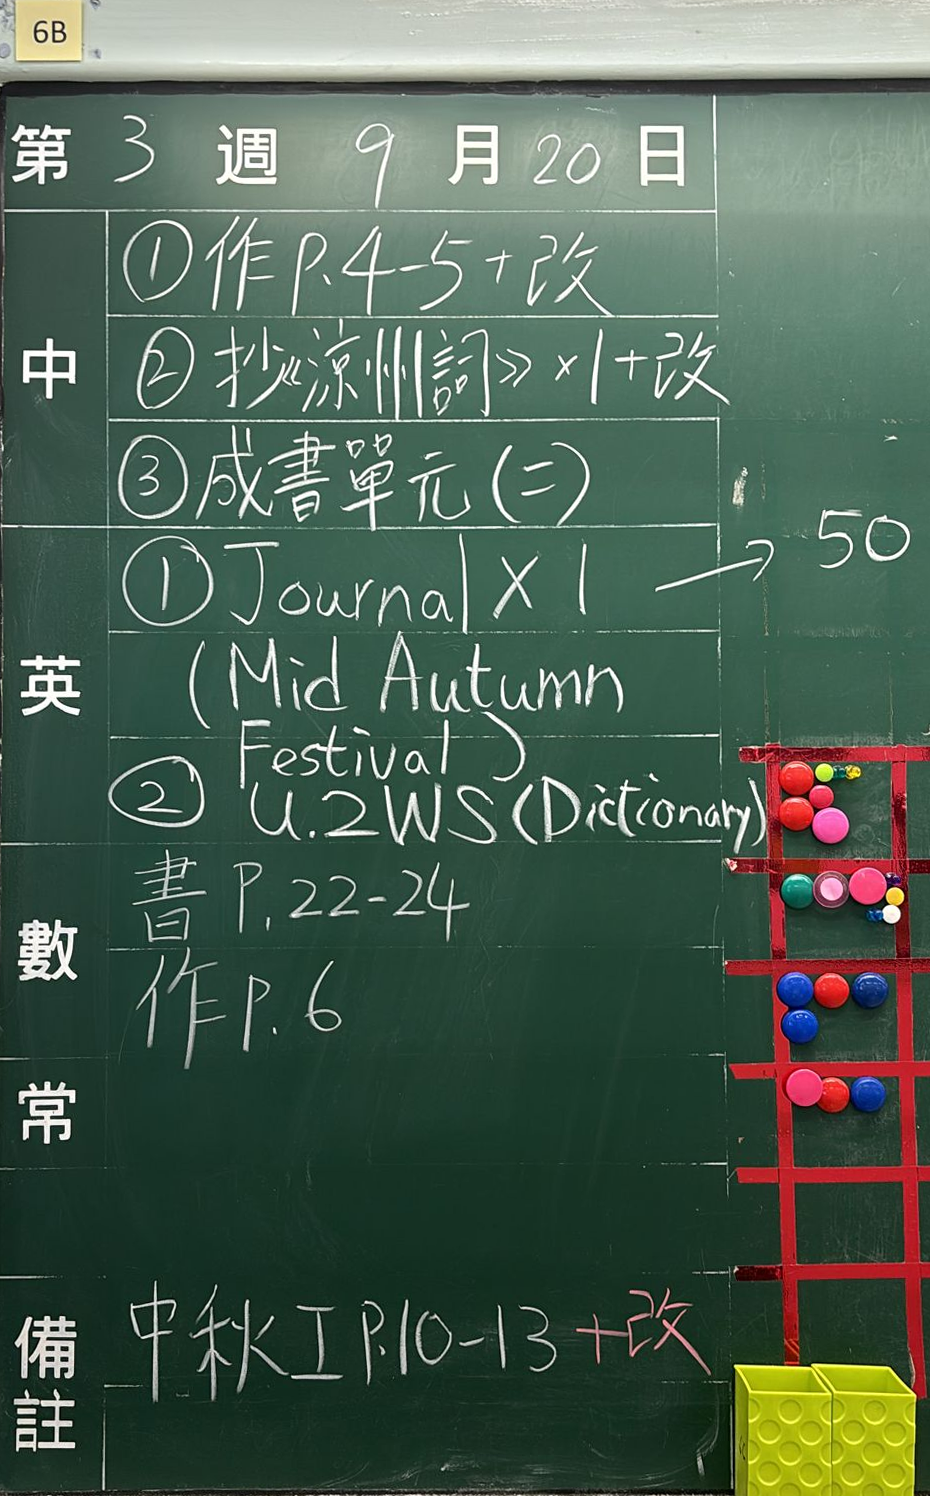 6B
第 3 週 9 月 20 日
中
①作P.4-5+改
②抄《涼州詞》×1+改
③成書單元(二)
英
①Journal X 1 → 50
(Mid Autumn
Festival)
② U.2WS(Dictionary)
數
書 P.22-24
作P.6
常
備註
中秋工P.10-13+改